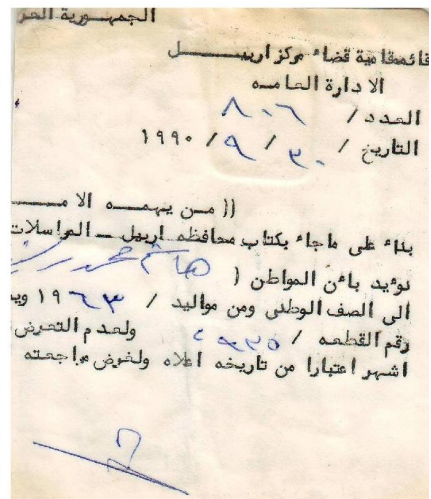 الجمهورية العر
قائمقامية قضاء مركز اربيل
الادارة العامه
العدد / ٨٠٦
التاريخ / ٣٠ / ٩ / ١٩٩٠
(( من يهمه الامـ
بناء على ماجاء بكتاب محافظه اربيل ــ المراسلات
نوءيد باءن المواطن ( هاشم محمد
الى الصف الوطنى ومن مواليد / ١٩٦٣ ويـ
رقم القطعه / ولعدم التعرض
اشهر اعتبارا من تاريخه اعلاه ولغرض مراجعته